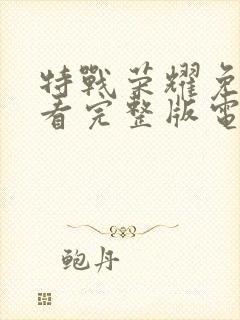 特戰荣耀免
看完整版電
鲍丹